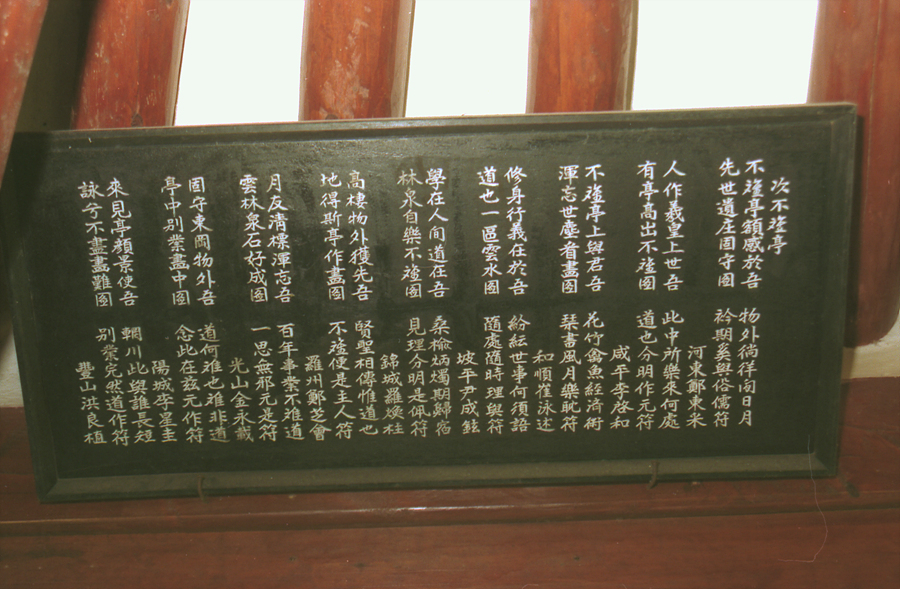 次不亭
不亭額感於吾 物外徜徉問日月
先世遺庄固守圖 衿期奚與俗儒符
河東鄭東采
人作羲皇上世吾 此中所樂來何處
有亭高出不圖 道也分明作元符
咸平李啓和
不亭上與君吾 花竹禽魚經濟術
渾忘世塵看畫圖 琹書風月樂耽符
和順崔泳述
修身行義在於吾 紛紜世事何須語
道也一區雲水圖 隨處隨時理與符
坡平尹成鉉
學在人間道在吾 桑榆炳燭期歸宿
林泉自樂不圖 見理分明是佩符
錦城羅煥柱
高棲物外獲先吾 賢聖相傳惟道也
地得斯亭作畫圖 不便是主人符
羅州鄭芝會
月友淸標渾忘吾 百年事業不離道
雲林泉石好成圖 一思無邪元是符
光山金永載
固守東岡物外吾 道何難也難非道
亭中別業畫中圖 念此在玆元作符
陽城李星圭
來見亭顏景使吾 輞川此與誰長短
詠兮不盡畫難圖 別業完然道作符
豊山洪良植